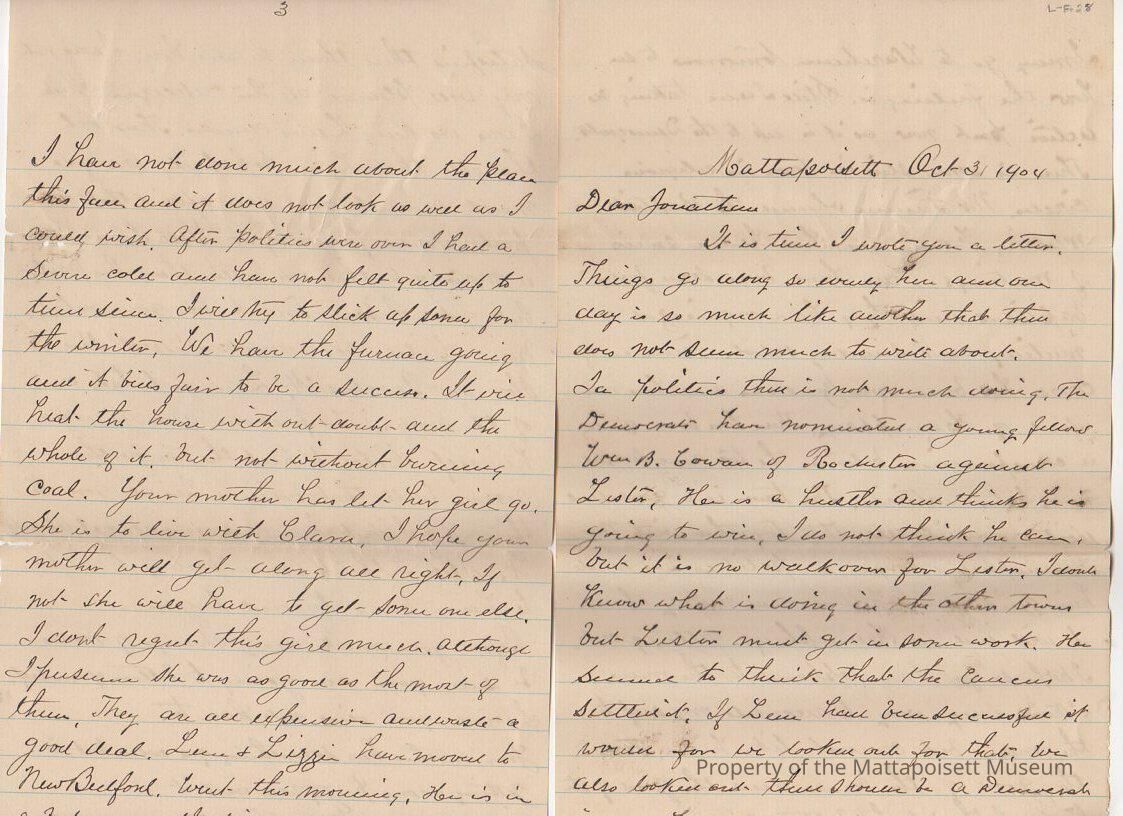 L-E-28
Mattapoisett Oct 31 1904
Dear Jonathan
It is time I wrote you a letter.
Things go along so evenly here and one
day is so much like another that there
does not seem much to write about.
In politics there is not much doing. The
Democrats have nominated a young fellow
Wm B. Cowan of Rochester against
Lester. He is a hustler and thinks he is
going to win. I do not think he can.
but it is no walkover for Lester. I dont
know what is doing in the other towns
but Lester must get in some work. He
seemed to think that the caucus
settled it. If Lem had been successful it
would for we looked out for that. We
also looked out there should be a Democrat
3
I have not done much about the place
this fall and it does not look as well as I
could wish. After politics were over I had a
severe cold and have not felt quite up to
time since. I will try to slick up some for
the winter. We have the furnace going
and it bids fair to be a success. It will
heat the house with out doubt and the
whole of it. but not without burning
coal. Your mother has let her girl go.
She is to live with Clara. I hope your
mother will get along all right. If
not she will have to get some one else.
I dont regret this girl much. although
I presume she was as good as the most of
them. They are all expensive and waste a
good deal. Lem & Lizzie have moved to
New Bedford. Went this morning. He is in
Property of the Mattapoisett Museum